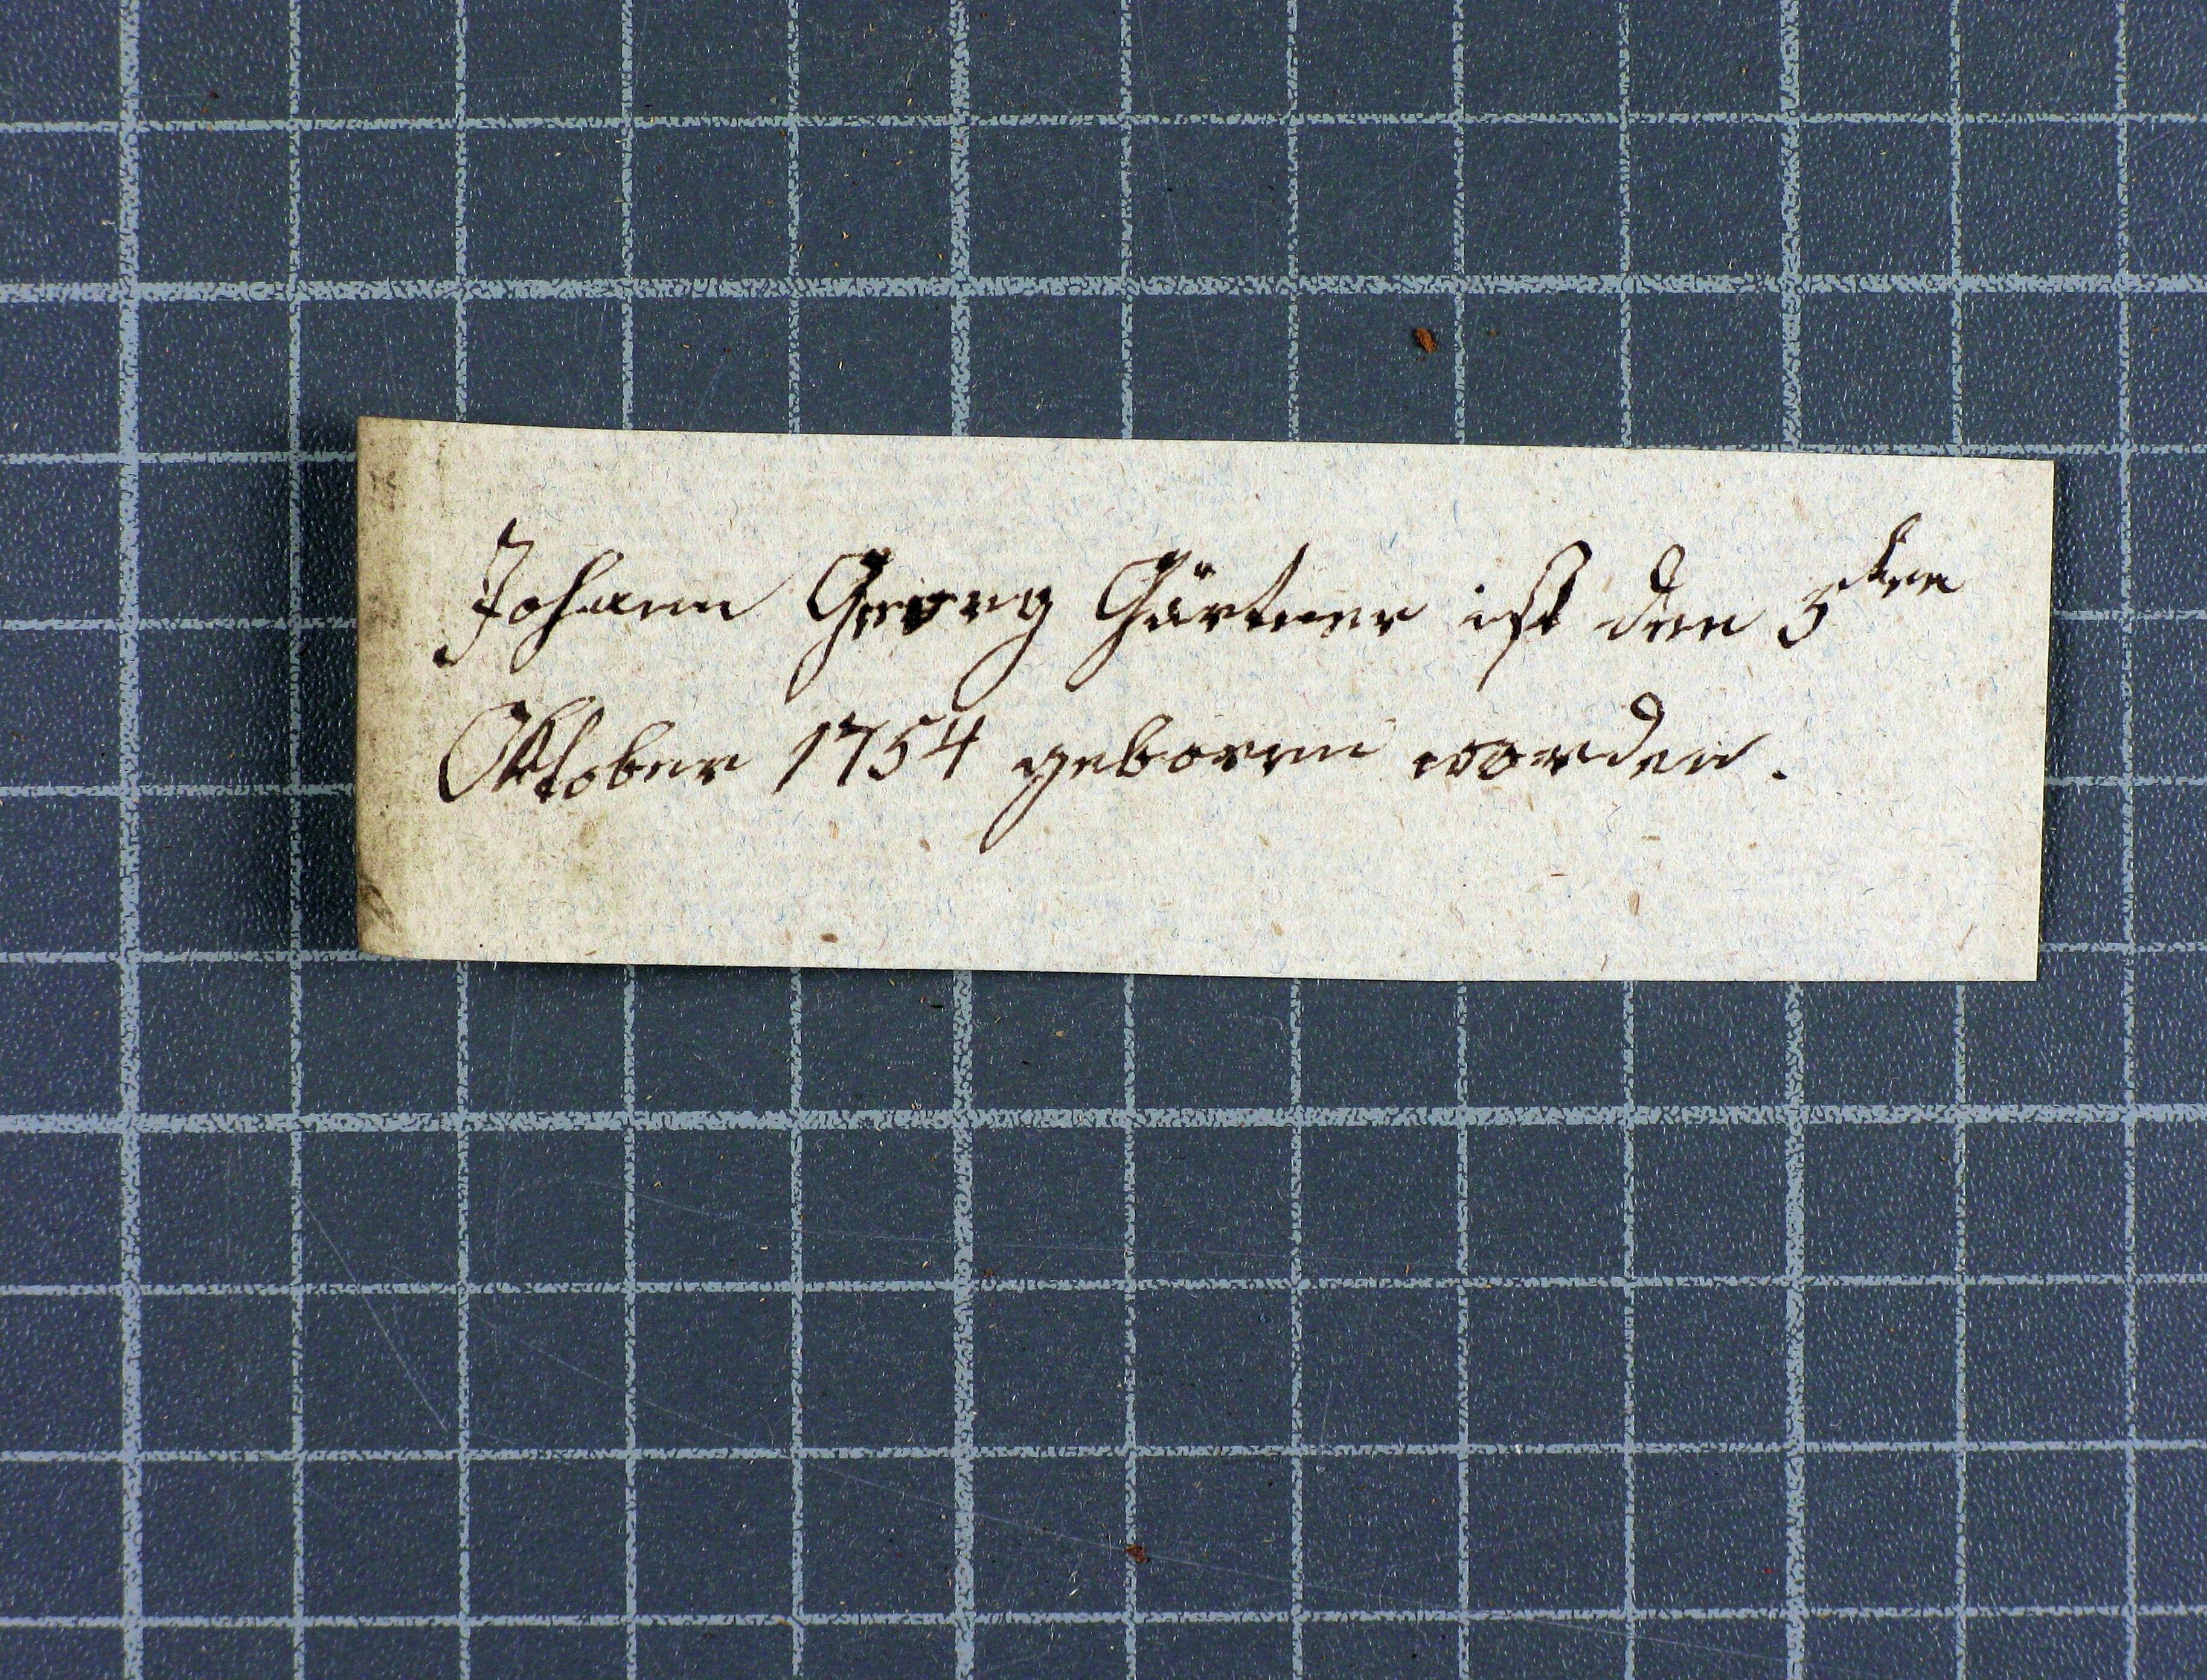 Johann Georg Gärtner ist den 5ten
Oktober 1754 geboren worden.